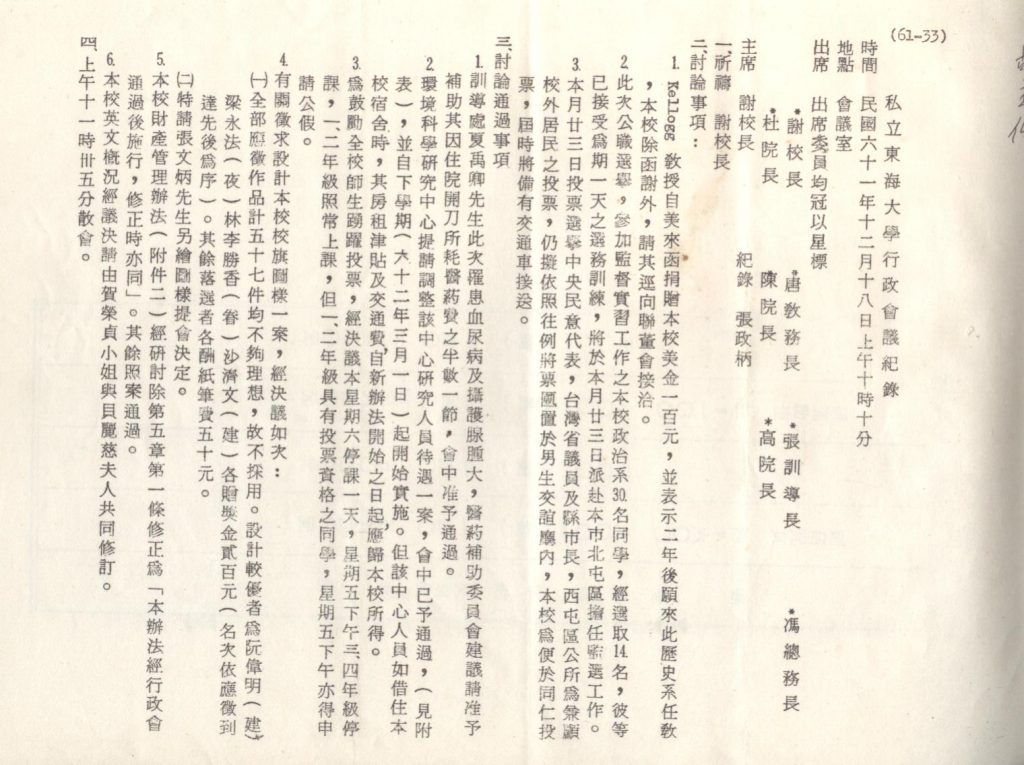 (61-33)
私立東海大學行政會議紀錄
時間 民國六十一年十二月十八日上午十時十分
地點 會議室
出席 出席委員均冠以星標
*謝校長 *唐教務長 *張訓導長 *馮總務長
*杜院長 *陳院長 *高院長
主席 謝校長 紀錄 張政柄
一、祈禱 謝校長
二、討論事項：
1. Kellogg 教授自美來函捐贈本校美金一百元，並表示二年後願來此歷史系任教
，本校除函謝外，請其逕向聯董會接洽。
2. 此次公職選舉，參加監督實習工作之本校政治系30名同學，經選取14名，彼等
已接受為期一天之選務訓練，將於本月廿三日派赴本市北屯區擔任監選工作。
3. 本月廿三日投票選舉中央民意代表，台灣省議員及縣市長，西屯區公所為兼顧
校外居民之投票，仍擬依照往例將票匭置於男生交誼廳內，本校為便於同仁投
票，屆時將備有交通車接送。
三、討論通過事項
1. 訓導處夏禹卿先生此次罹患血尿病及攝護腺腫大，醫葯補助委員會建議請准予
補助其因住院開刀所耗醫葯費之半數一節，會中准予通過。
2. 環境科學研究中心提請調整該中心研究人員待遇一案，會中已予通過，（見附
表），並自下學期（六十二年三月一日）起開始實施。但該中心人員如借住本
校宿舍時，其房租津貼及交通費，自新辦法開始之日起，應歸本校所得。
3. 為鼓勵全校師生踴躍投票，經決議本星期六停課一天，星期五下午三、四年級停
課，一、二年級照常上課，但一、二年級具有投票資格之同學，星期五下午亦得申
請公假。
4. 有關徵求設計本校校旗圖樣一案，經決議如次：
㈠全部應徵作品計五十七件均不夠理想，故不採用。設計較優者為阮偉明（建）、
梁永法（夜）林李勝香（眷）沙濟文（建）各贈獎金貳百元（名次依應徵到
達先後為序）。其餘落選者各酬紙筆費五十元。
㈡特請張文炳先生另繪圖樣提會決定。
5. 本校財產管理辦法（附件二）經研討除第五章第一條修正為「本辦法經行政會
通過後施行，修正時亦同」。其餘照案通過。
6. 本校英文概況經議決請由賀榮貞小姐與貝麗慈夫人共同修訂。
四、上午十一時卅五分散會。